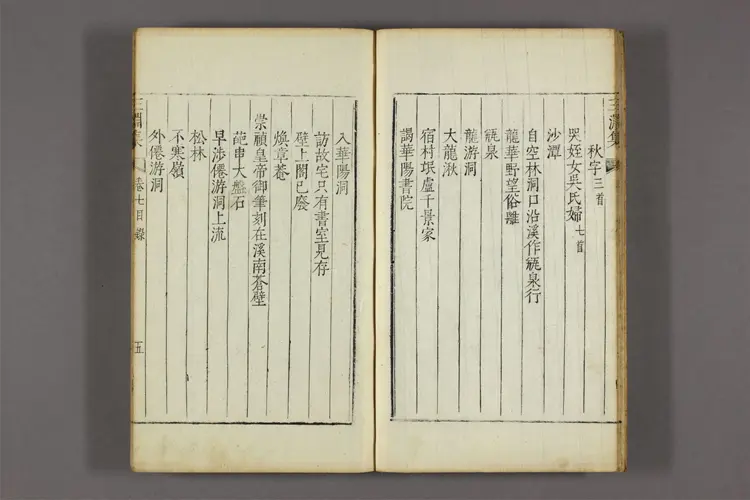 三淵集
秋字三首
哭姪女吳氏婦七首
沙潭
自空林洞口沿溪作甁泉行
龍華野望俗離
甁泉
龍游洞
大龍湫
宿村氓盧千景家
謁華陽書院
入華陽洞
訪故宅只有書室見存
壁上閣已廢
煥章菴
崇禎皇帝御筆刻在溪南蒼壁
葩串大盤石
早涉僊游洞上流
松林
不寒嶺
外僊游洞
三淵集
卷七目錄
五